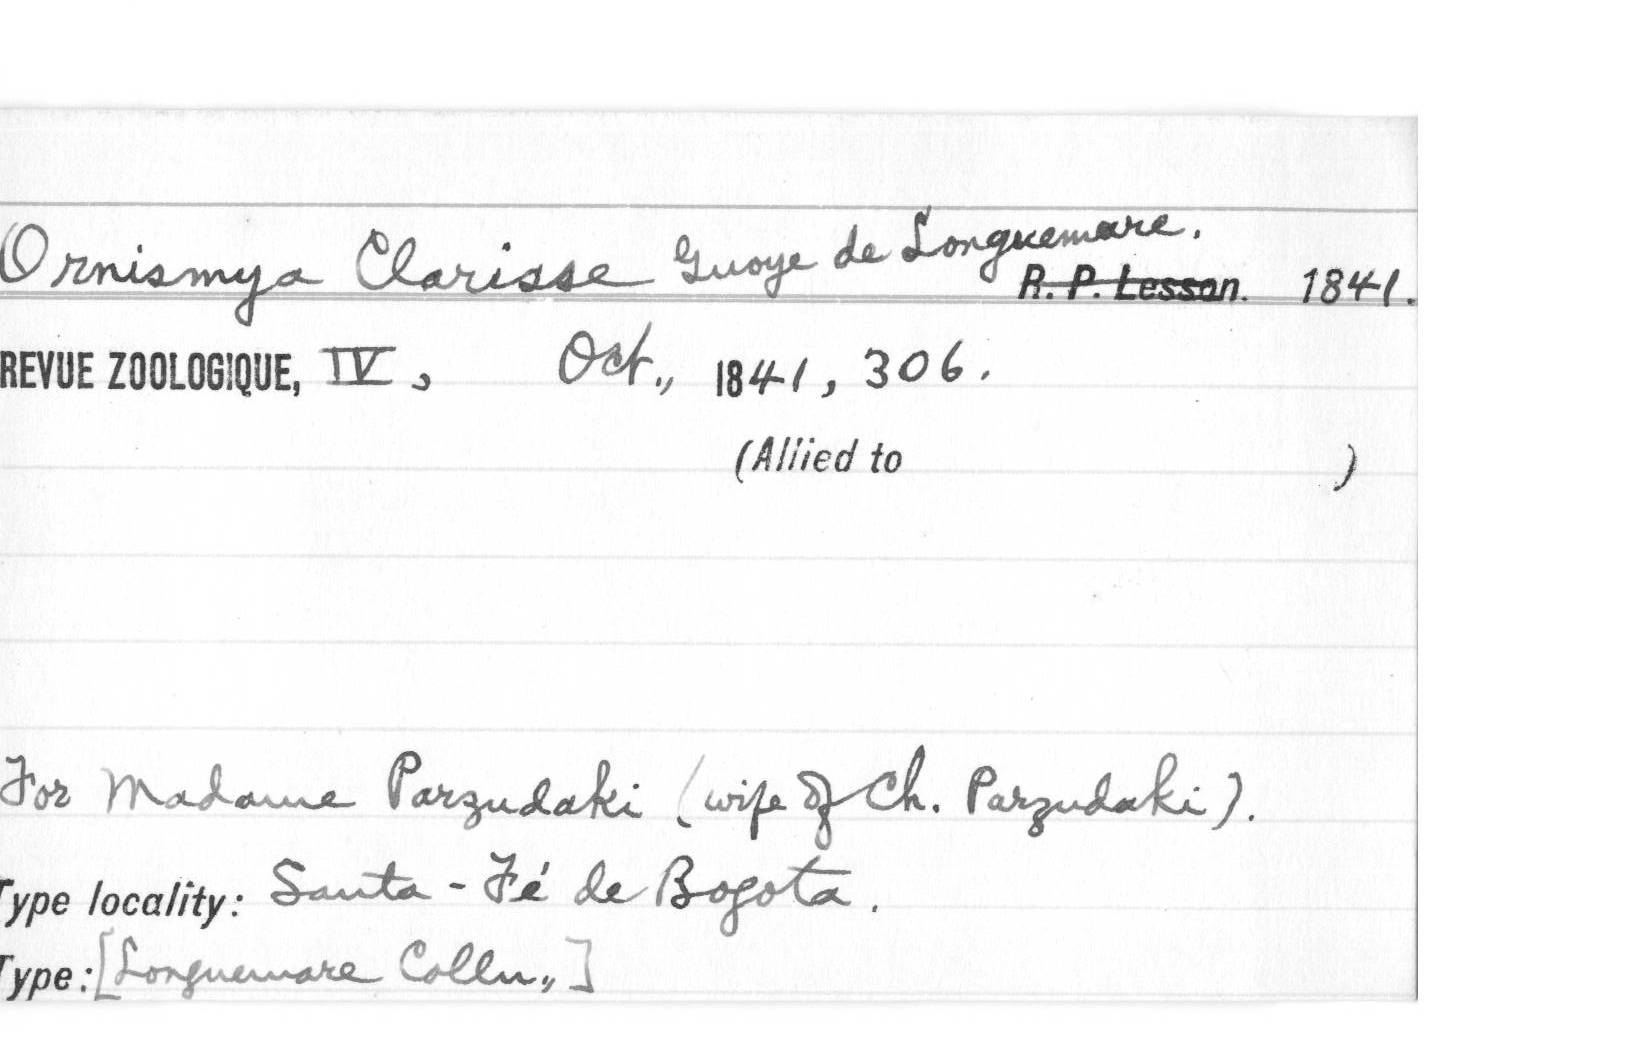 Ornismya Clarisse Guoye de Longuemare.
R. P. Lesson. 1841.
REVUE ZOOLOGIQUE, IV, Oct., 1841, 306.
(Allied to )
For Madame Parzudaki (wife of Ch. Parzudaki).
Type locality: Santa-Fé de Bogota.
Type: [Longuemare Colln,,]